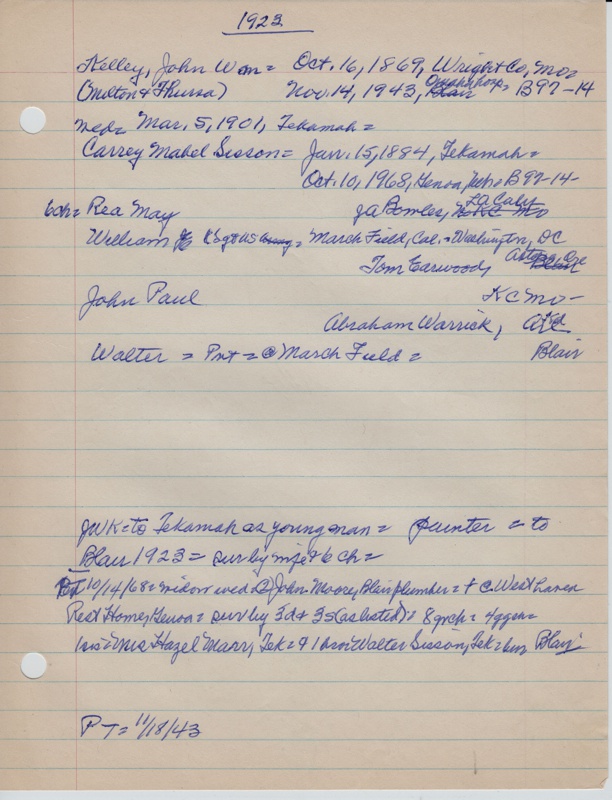 1923
Kelley, John Wm = Oct. 16, 1869, Wright Co, Mo =
(Milton & Thursa) Nov. 14, 1943, Omaha hosp = B97-14
med = Mar. 5, 1901, Tekamah =
Carrey Mabel Sisson = Jan. 15, 1884, Tekamah =
Oct. 10, 1968, Genoa, B97-14-
6ch = Rea May J A Bowles, LA Calif
William March Field, Cal. = Washington, DC
Tom Earwood,
John Paul KC Mo -
Abraham Warrick,
Walter = Pvt = @ March Field = Blair
JWK = to Tekamah as young man = painter = to
Blair 1923 = sur by wife & 6 ch =
10/14/68 = widow wed (2) John Moore, Blair plumber = + @ West Haven
Rest Home, Genoa = sur by 3d & 3s (as listed) = 8 grch = 4 ggch =
1 sis = Mrs Hazel Marr, Tek = & 1 bro Walter Sisson, Tek = bur Blair
P T = 11/18/43